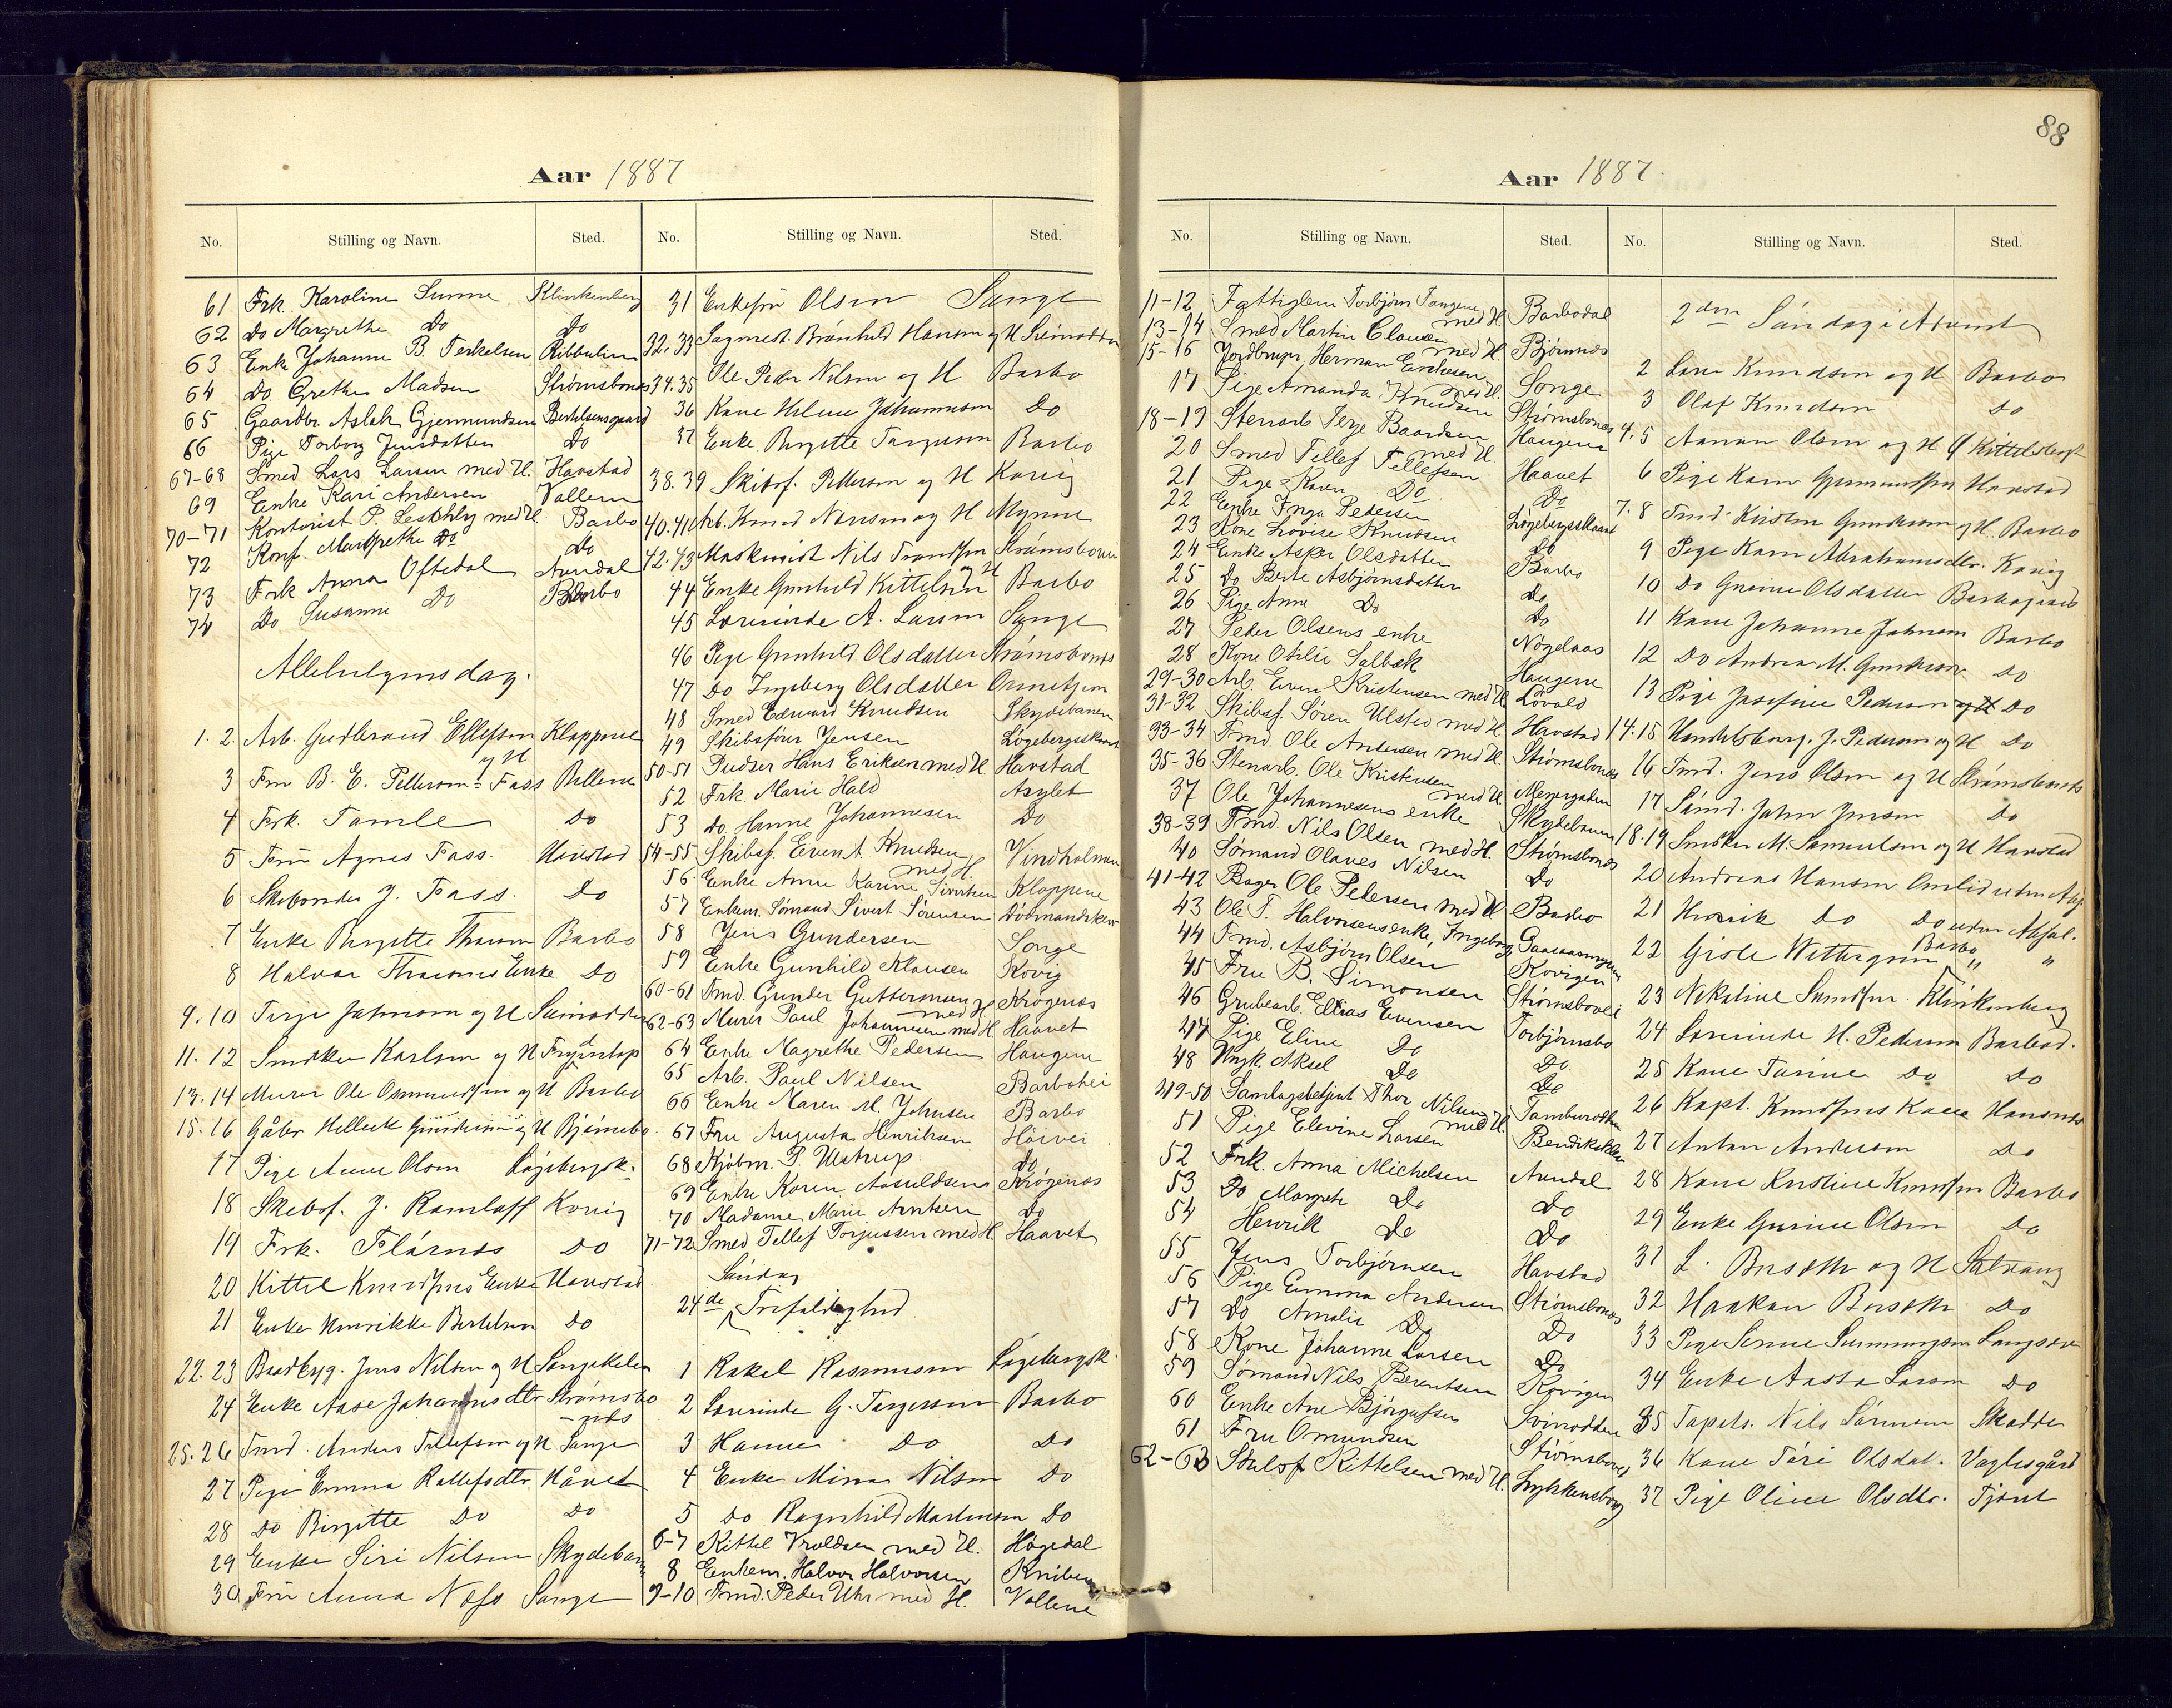 88
Aar 1887
No. Stilling og Navn. Sted. No. Stilling og Navn. Sted.
61 Frk. Karoline Sunne Klinkenberg
62 Do Margrethe Do Do
63 Enke Johanne B. Terkelsen
64 Do. Grethe Madsen Strømsbonæs
65 Gaardbr. Aslak Gjermundsen Bertelsensgaard
66 Pige Torborg Jensdatter Do
67-68 Smed Lars Larsen med H. Havstad
69 Enke Kari Andersen Vollene
70-71 Kontorist P. med H. Barbo
72 Konf. Margrethe Do Do
73 Frk Anna Oftedal Arendal
74 Do Susanne Do Barbo
Allehelgensdag.
1. 2. Arb. Gudbrand Ellefsen og H Kloppene
3 Fru B. E. Pettersen-Fass Vollene
4 Frk. Tomle Do
5 Fru Agnes Fass. Havstad
6 Skibsreder J. Fass. Do
7 Enke Birgitte Thorsen Barbo
8 Halvor Enke Do
9. 10 Terje Johnsen og H Svinodden
11. 12 Snedker Karlsen og H
13. 14 Murer Ole Osmundsen og H Barbo
15. 16 Gåbr Helleck Gundersen og H Bjørnebo
17 Pige Anne Olsen Løgebergsk.
18 Skibsf. J. Ramlaff Kovig
19 Frk. Flørnæs Do
20 Kittel Knudsens Enke Havstad
21 Enke Henrikke Bertelsen Do
22. 23 Baadbyg. Jens Nilsen og H Songekilen
24 Enke Aase Johannesdtr Strømsbonæs
25. 26 Tmd. Anders Tellefsen og H Songe
27 Pige Emma Rollefsdtr Håvet
28 Do Birgitte Do Do
29 Enke Siri Nilsen Skydebanen
30 Fru Anna Næss Songe
31 Enkefru Olsen Songe
32. 33 Sagmest. Brønild Hansen og H Svinodden
34. 35 Ole Peder Nilsen og H Barbo
36 Kone Helene Johannesen Do
37 Enke Birgitte Torgersen Barbo
38. 39 Skibsf. Pettersen og H Kovig
40. 41 Arb. Knud og H Myrene
42. 43 Maskinist Nils Trondsen og H Strømsbovei
44 Enke Gunhild Kittelsen Barbo
45 Lærerinde A. Larsen Songe
46 Pige Gunhild Olsdatter Strømsbonæs
47 Do Ingeborg Olsdatter Ormetjen
48 Smed Edward Knudsen Skydebanen
49 Skibsfører Jensen Løgebergsskaret
50-51 Pudser Hans Eriksen med H. Havstad
52 Frk Marie Hald Asylet
53 Do. Hanne Johannesen Do
54-55 Skibsf. Even A. Knudsen med H. Vindholmen
56. Enke Anne Karine Sivertsen Kloppene
57 Enkem. Sømand Sivert Sørensen Dødmandskjær
58 Jens Gundersen Songe
59 Enke Gunhild Klausen Kovig
60-61 Tmd. Gunder Guttormsen med H Krøgenæs
62-63 Murer Paul Johannesen med H. Haavet
64 Enke Magrethe Pedersen Haugene
65 Arb. Paul Nilsen Barbohei
66 Enke Maren M. Johnsen Barbo
67 Fru Augusta Henriksen Høivei
68 Kjøbm. P. Ulstrup. Do
69 Enke Karen Aanuldsens Krøgenæs
70 Madame Marie Arntsen Do
71-72 Smed Tellef Torjussen med H. Haavet
Søndag
24de Trefoldighed
1 Rakel Rasmussen Løgebergsk.
2 Lærerinde G. Torgersen Barbo
3 Hanne Do Do
4 Enke Mina Nilsen Do
5 Do Ragnhild Martinsen Do
6-7 Kittel Vroldsen med H. Høgedal
8 Enkem. Halvor Halvorsen Kniben
9-10 Tmd. Peder Uhr med H. Vollene
Aar 1887.
No. Stilling og Navn. Sted. No. Stilling og Navn. Sted.
11-12 Fattiglem Torbjørn Tangene med H Barbodal
13-14 Smed Martin Clausen med H. Bjørnnæs
15-16 Jordbruger Herman Evensen med H. Songe
17 Pige Amanda Knudsen Strømsbonæs
18-19 Stenarb Terje Baardsen med H Haugene
20 Smed Tellef Tellefsen Haavet
21 Pige Karen Do Do
22 Enke Inga Pedersen Løgebergsskaaret
23 Kone Lovise Knudsen Do
24 Enke Asker Olsdatter Barbo
25 Do Berte Asbjørnsdatter Do
26 Pige Anne Do Do
27 Peder Olsens enke Nøgelaas
28 Kone Otilie Solbæk Haugene
29-30 Arb. Even Kristensen med H Løvold
31-32 Skibsf. Søren Ulsted med H Havstad
33-34 Tmd. Ole Andersen med H. Strømsbonæs
35-36 Stenarb. Ole Kristensen med H. Meyergaden
37 Ole Johannesens enke Skydebanen
38-39 Tmd. Nils Olsen med H. Strømsbonæs
40 Sømand Olaves Nilsen Do
41-42 Bager Ole Pedersen med H Barbo
43 Ole T. Halvorsens enke, Ingeborg
44 Tmd. Asbjørn Olsen Kovigen
45 Fru B. Simonsen Strømsbovei
46 Grubearb. Ellias Evensen Torbjørnsbo
47 Pige Eline Do Do.
48 Ungk. Aksel Do Do
49-50 Samlagsbetjent Thor Nilsen med H. Tamburodden
51 Pige Elevine Larsen Bendiksklev
52 Frk. Anna Michelsen Arendal
53 Do Margrete Do Do
54 Henrik Do Do
55 Jens Torbjørnsen Havstad
56 Pige Emma Andersen Strømsbonæs
57 Do Amalie Do Do
58 Kone Johanne Larsen Do
59 Sømand Nils Berentsen Kovigen
60 Enke Ane Bjørgufsen Svinodden
61 Fru Omundsen Strømsbonæs
62-63 Skibsf Kittelsen med H. Lykkensborg
2den Søndag i Advent
2 Lars Knudsen og H Barbo
3 Olaf Knudsen Do
4. 5 Aanon Olsen og H
6 Pige Karen Gjermundsen Havstad
7. 8 Tmd. Kristen Gundersen og H. Barbo
9 Pige Karen Abrahamsdtr. Kovig
10 Do Gurine Olsdatter Barbogaard
11 Kone Johanne Johnsen Barbo
12 Do Andrea M. Gundersen Do
13 Pige Josefine Pedersen Do
14. 15 Handelsborg. J. Pedersen og H Do
16 Tmd. Jens Olsen og H Strømsbonæs
17 Sømd. John Jensen Do
18. 19 Snedker M. Samuelsen og H Havstad
20 Andreas Hansen
21 Henrik Do Do
22 Gisle Barbo " "
23 Nikoline Klinkenberg
24 Lærerinde H. Pedersen Barbod.
25 Kone Torine Do Do
26 Kapt. Knudsens Kone Havsnæs
27 Anton Andersen Do
28 Kone Kristine Knudsen Barbo
29 Enke Gurine Olsen Do
31 L. og H
32 Haakon Do
33 Pige Langsæv
34 Enke Aasta Larsen Do
35 Tapets. Nils Sørensen Skodde
36 Kone Tøri Olsdat. Voglesgård
37 Pige Oline Olsdtr. Tjøne